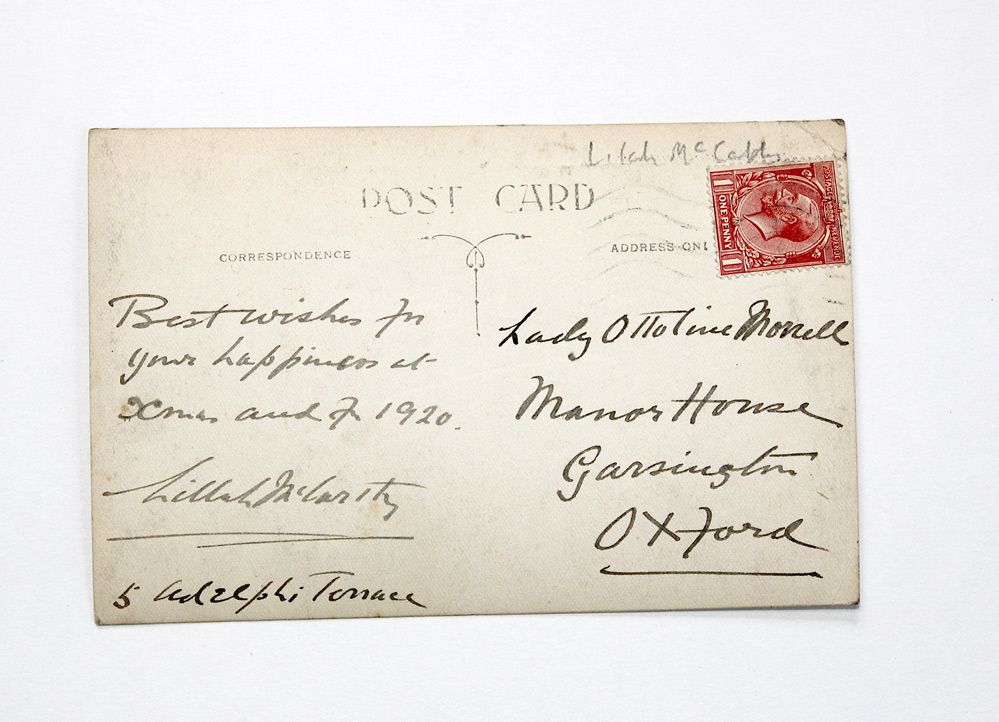 POST CARD
CORRESPONDENCE
ADDRESS ONL
ONE PENNY
Best wishes for
your happiness at
Xmas and for 1920.
Lillah McCarthy
5 Adelphi Terrace
Lady Ottoline Morrell
Manor House
Garsington
OXFord